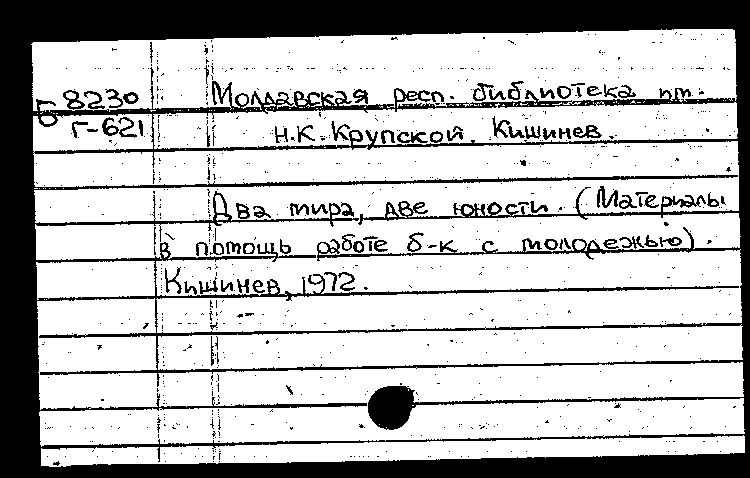 Б 8230 Молдавская респ. библиотека им.
Г-621 Н.К. Крупской. Кишинев.
Два мира, две юности. (Материалы
в помощь работе б-к с молодежью).
Кишинев, 1972.